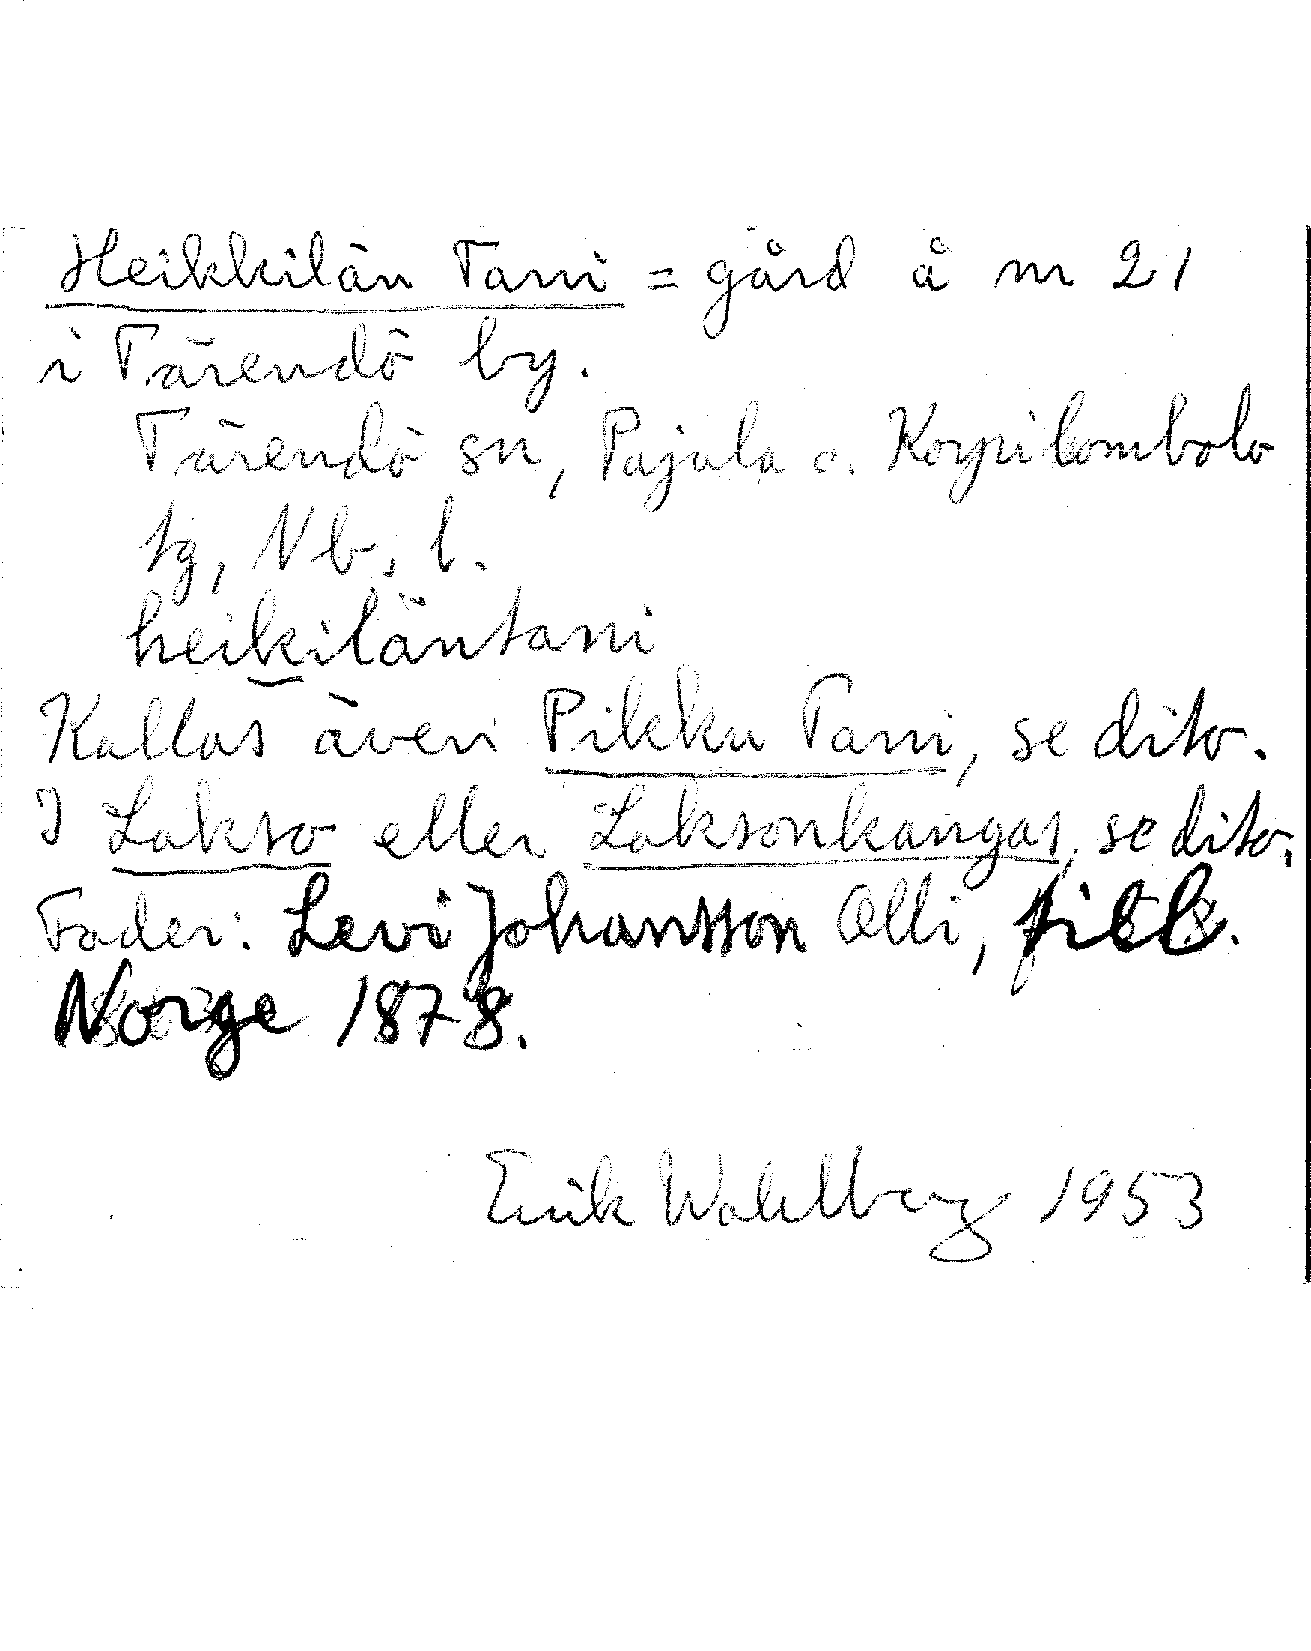 Heikkilän Tani = gård å nr 21
i Tärendö by.
Tärendö sn, Pajala o. Korpilombolo
tg, Nb. l.
heikiläntani
Kallas även Pikku Tani, se dito.
I Lakso eller Laksonkangas, se dito.
Fader: Levi Johansson Olli, till
Norge 1878.
Erik Wahlberg 1953